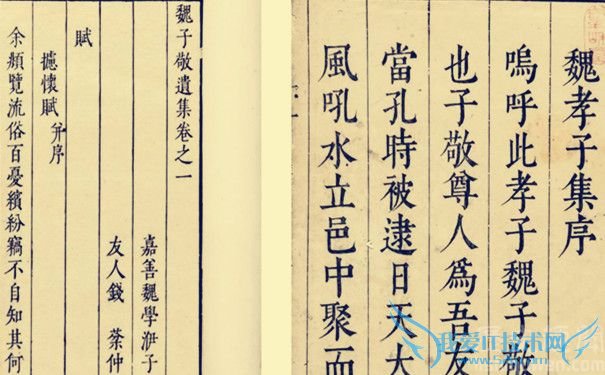 魏孝子集序
嗚呼此孝子魏子敬
也子敬尊人為吾友
當孔時被逮日天大
風吼水立邑中聚而
魏子敬遺集卷之一
嘉善魏學洢子
友人錢 棻仲
賦
攄懷賦并序
余頫覽流俗百憂繽紛竊不自知其何
我爱IT技术网